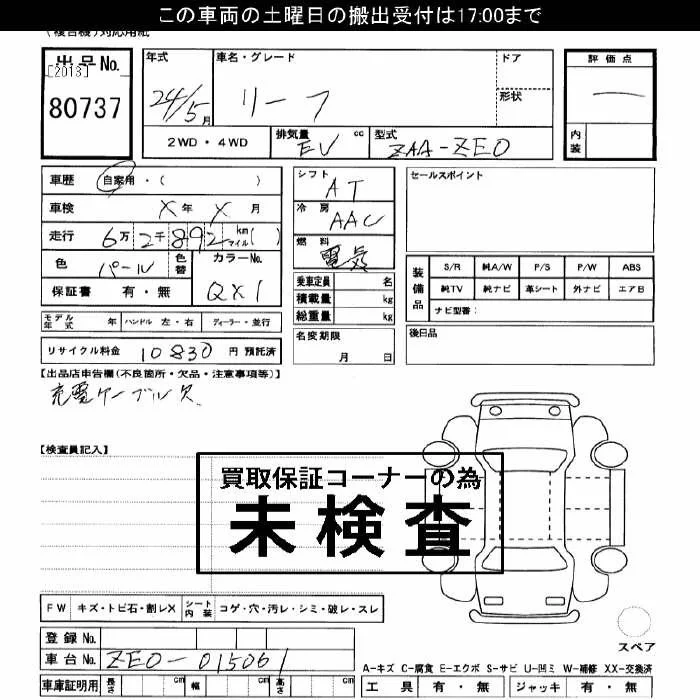 この車両の土曜日の搬出受付は17:00まで
(複合機)対応用紙
出品No.
[2013]
80737
年式
24/5月
車名・グレード
リーフ
ドア
形状
2WD・4WD
排気量 EV cc
型式 ZAA-ZE0
評価点
内装
車歴 自家用・( )
車検 X年 X月
走行 6万2千892 km マイル( )
色 パール 色替 カラーNo. QX1
保証書 有・無
モデル年式 年 ハンドル 左・右 ディーラー・並行
リサイクル料金 10830 円 預託済
シフト AT
冷房 AAC
燃料 電気
乗車定員 名
積載量 kg
総重量 kg
名変期限
月 日
セールスポイント
装備品
S/R 純A/W P/S P/W ABS
純TV 純ナビ 革シート 外ナビ エアB
ナビ型番:
後日品
【出品店申告欄(不良箇所・欠品・注意事項等)】
充電ケーブル欠
【検査員記入】
買取保証コーナーの為
未検査
FW キズ・トビ石・割レX シート内装 コゲ・穴・汚レ・シミ・破レ・スレ
登録No.
車台No. ZE0-015061
車庫証明用 長さ cm 幅 cm 高さ cm
スペア
A-キズ C-腐食 E-エクボ S-サビ U-凹ミ W-補修 XX-交換済
工具 有・無 ジャッキ 有・無